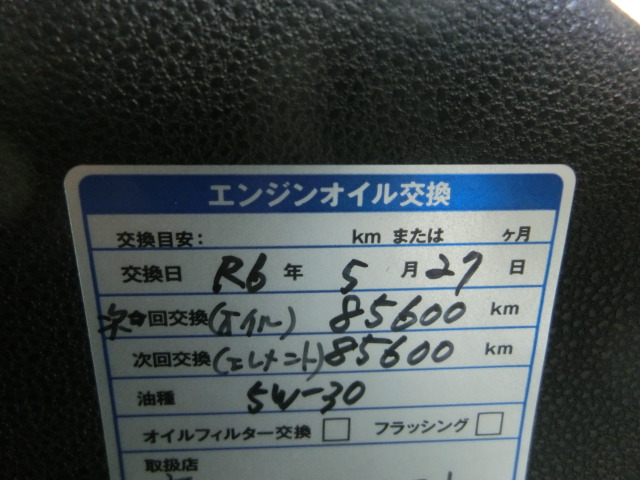 エンジンオイル交換
交換目安: km または ヶ月
交換日 R6年 5月27日
次回交換(オイル) 85600 km
次回交換(エレメント) 85600 km
油種 5W-30
オイルフィルター交換 □ フラッシング □
取扱店